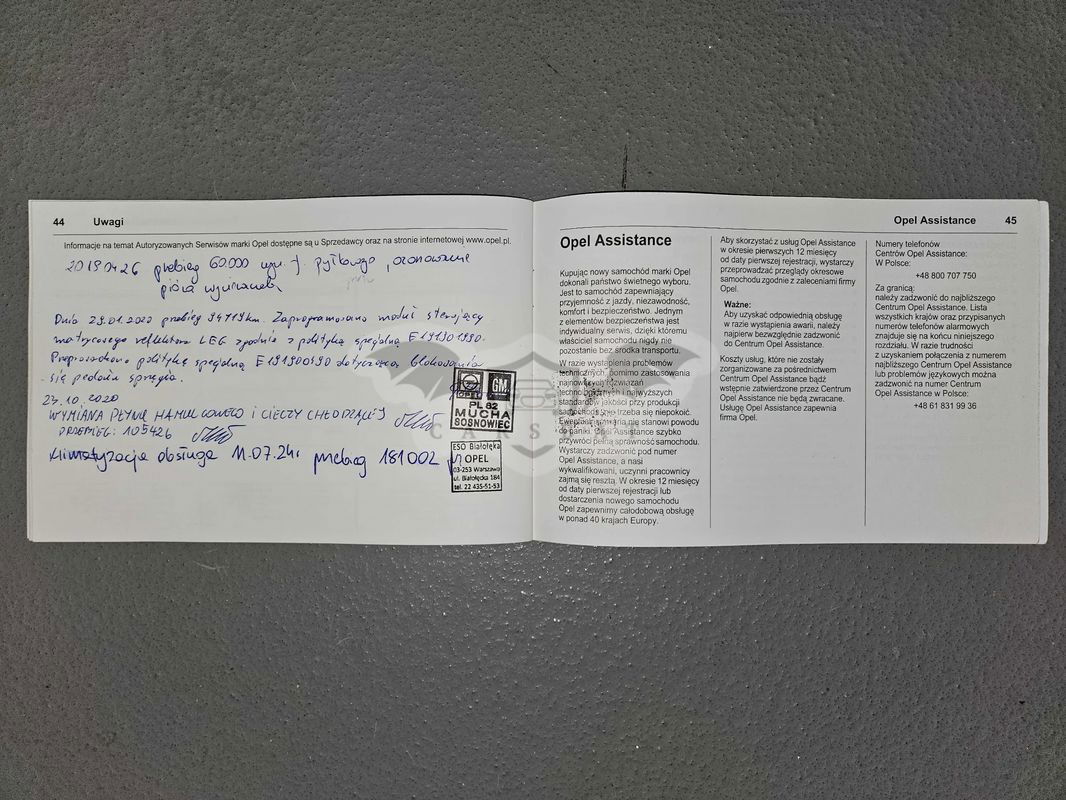 44 Uwagi
Informacje na temat Autoryzowanych Serwisów marki Opel dostępne są u Sprzedawcy oraz na stronie internetowej www.opel.pl.
20190426 przebieg 60.000 wym. f. pyłkowego, ozonowanie
pióra wycieraczek
Dnia 29.01.2020 przebieg 94719km. Zaprogramowano moduł sterujący
matrycowego reflektora LEG zgodnie z polityką specjalną E191301990.
Przeprowadzono politykę specjalną E191900590 dotyczącą blokowania
się pedału sprzęgła.
23.10.2020
WYMIANA PŁYNU HAMULCOWEGO I CIECZY CHŁODZĄCEJ
PRZEBIEG: 105426
Klimatyzacja obsługa 11.07.24r przebieg 181002
OPEL GM
PL 62
MUCHA
SOSNOWIEC
ESO Białołęka
OPEL
03-253 Warszawa
ul. Białołęcka 184
tel. 22 435-51-53
Opel Assistance 45
Opel Assistance
Kupując nowy samochód marki Opel
dokonali państwo świetnego wyboru.
Jest to samochód zapewniający
przyjemność z jazdy, niezawodność,
komfort i bezpieczeństwo. Jednym
z elementów bezpieczeństwa jest
indywidualny serwis, dzięki któremu
właściciel samochodu nigdy nie
pozostanie bez środka transportu.
W razie wystąpienia problemów
technicznych, pomimo zastosowania
najnowszych rozwiązań
technologicznych i najwyższych
standardów jakości przy produkcji
samochodu, nie trzeba się niepokoić.
Ewentualna awaria nie stanowi powodu
do paniki. Opel Assistance szybko
przywróci pełną sprawność samochodu.
Wystarczy zadzwonić pod numer
Opel Assistance, a nasi
wykwalifikowani, uczynni pracownicy
zajmą się resztą. W okresie 12 miesięcy
od daty pierwszej rejestracji lub
dostarczenia nowego samochodu
Opel zapewnimy całodobową obsługę
w ponad 40 krajach Europy.
Aby skorzystać z usług Opel Assistance
w okresie pierwszych 12 miesięcy
od daty pierwszej rejestracji, wystarczy
przeprowadzać przeglądy okresowe
samochodu zgodnie z zaleceniami firmy
Opel.
Ważne:
Aby uzyskać odpowiednią obsługę
w razie wystąpienia awarii, należy
najpierw bezwzględnie zadzwonić
do Centrum Opel Assistance.
Koszty usług, które nie zostały
zorganizowane za pośrednictwem
Centrum Opel Assistance bądź
wstępnie zatwierdzone przez Centrum
Opel Assistance nie będą zwracane.
Usługę Opel Assistance zapewnia
firma Opel.
Numery telefonów
Centrów Opel Assistance:
W Polsce:
+48 800 707 750
Za granicą:
należy zadzwonić do najbliższego
Centrum Opel Assistance. Lista
wszystkich krajów oraz przypisanych
numerów telefonów alarmowych
znajduje się na końcu niniejszego
rozdziału. W razie trudności
z uzyskaniem połączenia z numerem
najbliższego Centrum Opel Assistance
lub problemów językowych można
zadzwonić na numer Centrum
Opel Assistance w Polsce:
+48 61 831 99 36